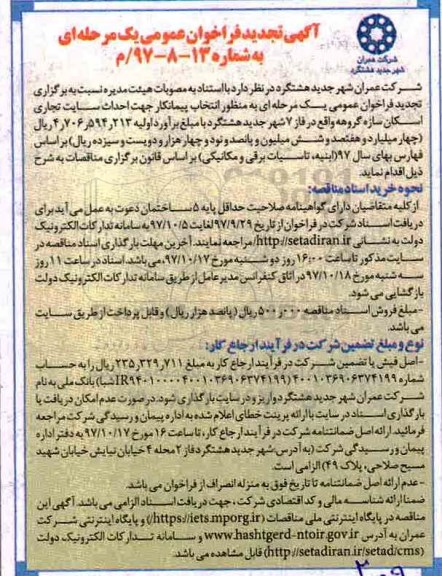 شرکت عمران
شهر جدید هشتگرد
آگهی تجدید فراخوان عمومی یک مرحله‌ای
به شماره ۱۳-۸-۹۷/م
شرکت عمران شهر جدید هشتگرد در نظر دارد با استناد به مصوبات هیئت مدیره نسبت به برگزاری
تجدید فراخوان عمومی یک مرحله ای به منظور انتخاب پیمانکار جهت احداث سایت تجاری
اسکان سازه گروهه واقع در فاز ۷ شهر جدید هشتگرد با مبلغ برآورد اولیه ۴٫۷۰۶٫۵۹۴٫۲۱۳ ریال
(چهار میلیارد و هفتصد و شش میلیون و پانصد و نود و چهار هزار و دویست و سیزده ریال) بر اساس
فهارس بهای سال ۹۷ (ابنیه، تاسیسات برقی و مکانیکی) بر اساس قانون برگزاری مناقصات به شرح
ذیل اقدام نماید.
نحوه خرید اسناد مناقصه:
از کلیه متقاضیان دارای گواهینامه صلاحیت حداقل پایه ۵ ساختمان دعوت به عمل می آید برای
دریافت اسناد شرکت در فراخوان از تاریخ ۹۷/۹/۲۹ لغایت ۹۷/۱۰/۵ به سامانه تدارکات الکترونیک
دولت به نشانی http://setadiran.ir/ مراجعه نمایند. آخرین مهلت بارگذاری اسناد مناقصه در
سایت مذکور تا ساعت ۱۶:۰۰ روز دو شنبه مورخ ۹۷/۱۰/۱۷، می باشد. اسناد در ساعت ۱۱ روز
سه شنبه مورخ ۹۷/۱۰/۱۸ در اتاق کنفرانس مدیر عامل از طریق سامانه تدارکات الکترونیک دولت
بازگشایی می شود.
-مبلغ فروش اسناد مناقصه ۵۰۰٫۰۰۰ ریال (پانصد هزار ریال) و قابل پرداخت از طریق سایت
می باشد.
نوع و مبلغ تضمین شرکت در فرآیند ارجاع کار:
-اصل فیش یا تضمین شرکت در فرآیند ارجاع کار به مبلغ ۲۳۵٫۳۲۹٫۷۱۱ ریال را به حساب
شماره ۴۰۰۱۰۳۶۹۰۶۳۷۴۱۹۹ (IR۹۴۰۱۰۰۰۰۴۰۰۱۰۳۶۹۰۶۳۷۴۱۹۹ شبا) بانک ملی به نام
شرکت عمران شهر جدید هشتگرد واریز و در سایت بارگذاری شود. در صورت عدم امکان دریافت یا
بارگذاری اسناد در سایت با ارائه پرینت خطای اعلام شده به اداره پیمان و رسیدگی شرکت مراجعه
فرمائید. ارائه اصل ضمانتنامه شرکت در فرآیند ارجاع کار، تا ساعت ۱۶ مورخ ۹۷/۱۰/۱۷ به دفتر اداره
پیمان و رسیدگی شرکت (به آدرس: شهر جدید هشتگرد فاز ۲ محله ۴ خیابان نیایش خیابان شهید
مسیح صلاحی، پلاک ۴۹) الزامی است.
-عدم ارائه اصل ضمانتنامه تا تاریخ فوق به منزله انصراف از فراخوان می باشد.
ضمنا ارائه شناسه مالی و کد اقتصادی شرکت، جهت دریافت اسناد الزامی می باشد. آگهی این
مناقصه در پایگاه اینترنتی ملی مناقصات (https://iets.mporg.ir/) و پایگاه اینترنتی شرکت
عمران به آدرس www.hashtgerd-ntoir.gov.ir و سامانه تدارکات الکترونیک دولت
(http://setadiran.ir/setad/cms) قابل مشاهده می باشد.